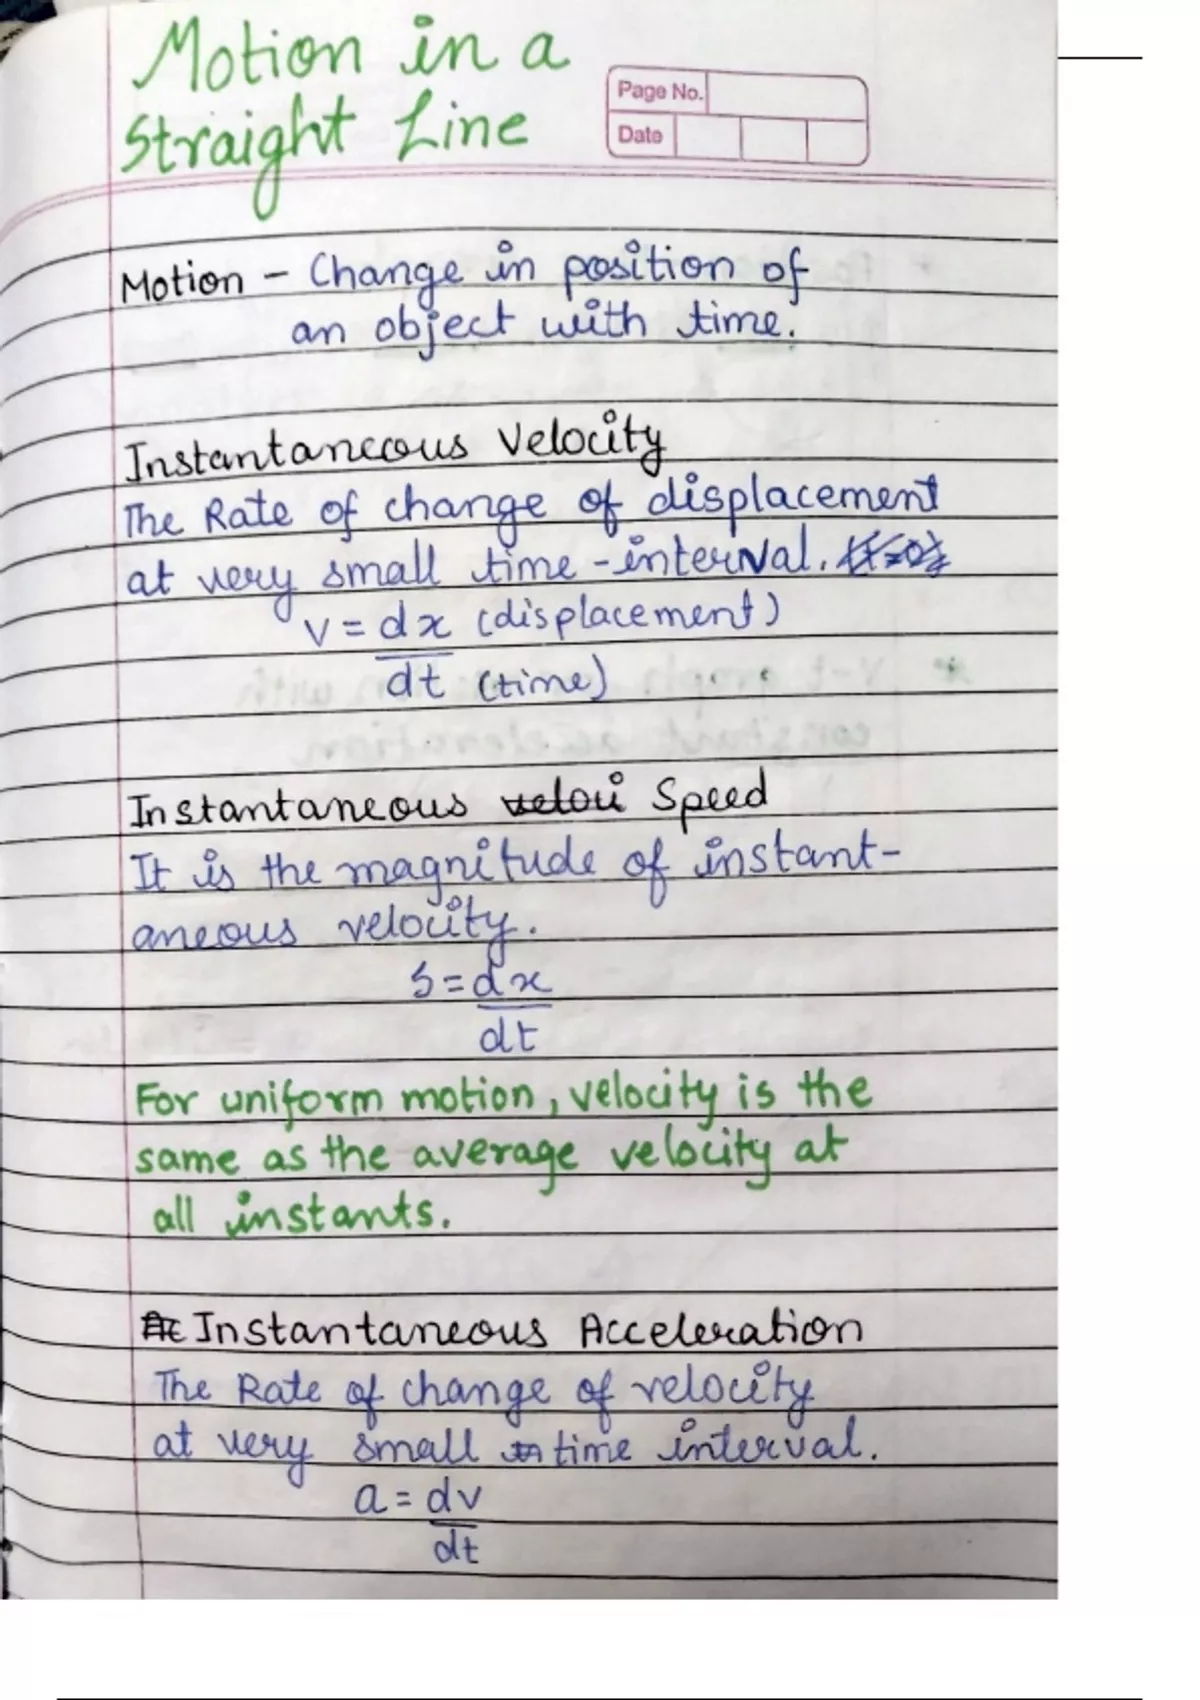 Motion in a
Straight Line
Page No.
Date
Motion - Change in position of
an object with time.
Instantaneous Velocity
The Rate of change of displacement
at very small time-interval.
v = dx (displacement)
dt (time)
Instantaneous Speed
It is the magnitude of instant-
aneous velocity.
s = dx
dt
For uniform motion, velocity is the
same as the average velocity at
all instants.
Instantaneous Acceleration
The Rate of change of velocity
at very small time interval.
a = dv
dt